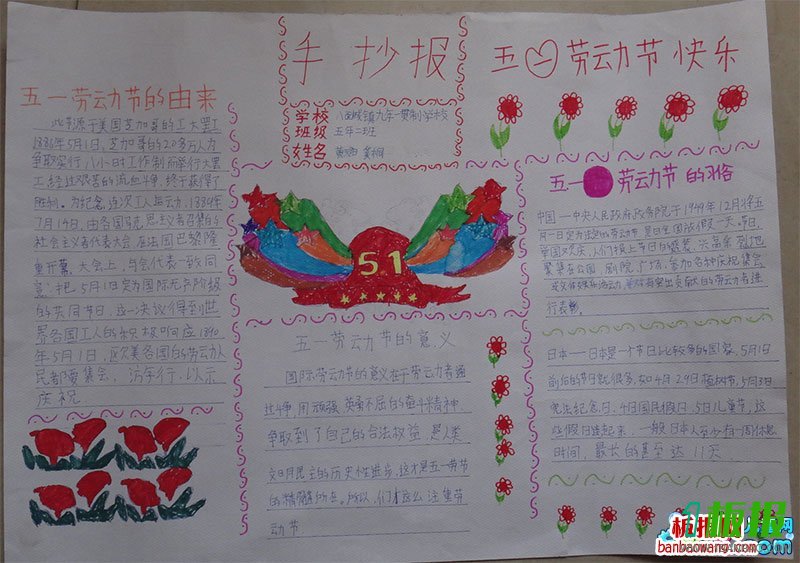 手抄报
学校 八面城镇九年一贯制学校
班级 五年二班
姓名
五一劳动节快乐
五一劳动节的由来
此节源于美国芝加哥的工大罢工
1886年5月1日,芝加哥的20多万人为
争取实行八小时工作制而举行大罢
工经过艰苦的流血斗争,终于获得了
胜利。为纪念这次工人运动,1889年
7月14日,由各国马克思主义者召集的
社会主义者代表大会在法国巴黎隆
重开幕。大会上,与会代表一致同
意:把5月1日定为国际无产阶级
的共同节日。这一决议得到世
界各国工人的积极响应1890
年5月1日,欧美各国的劳动人
民都要集会,游行,以示
庆祝
51
五一劳动节的意义
国际劳动节的意义在于劳动者通
过斗争,用顽强、英勇不屈的奋斗精神,
争取到了自己的合法权益,是人类
文明民主的历史性进步,这才是五一劳节
的精髓所在。所以,人们才这么注重劳
动节
五一 劳动节的习俗
中国一中央人民政府政务院于1949年12月将五
月一日定为法定的劳动节,是日全国放假一天。节日,
举国欢庆,人们换上节日的盛装,兴高采烈地
聚集在公园,剧院,广场,参加各种庆祝集会
或文体娱乐活动,并对有突出贡献的劳动者进
行表彰。
日本一日本是一个节日比较多的国家,5月1日
前后的节日就很多,如4月29日植树节,5月3日
宪法纪念日,4日国民假日,5日儿童节,这
些假日连起来,一般日本人至少有一周休息
时间,最长的甚至达11天
板报
板报网
banbaowang.com